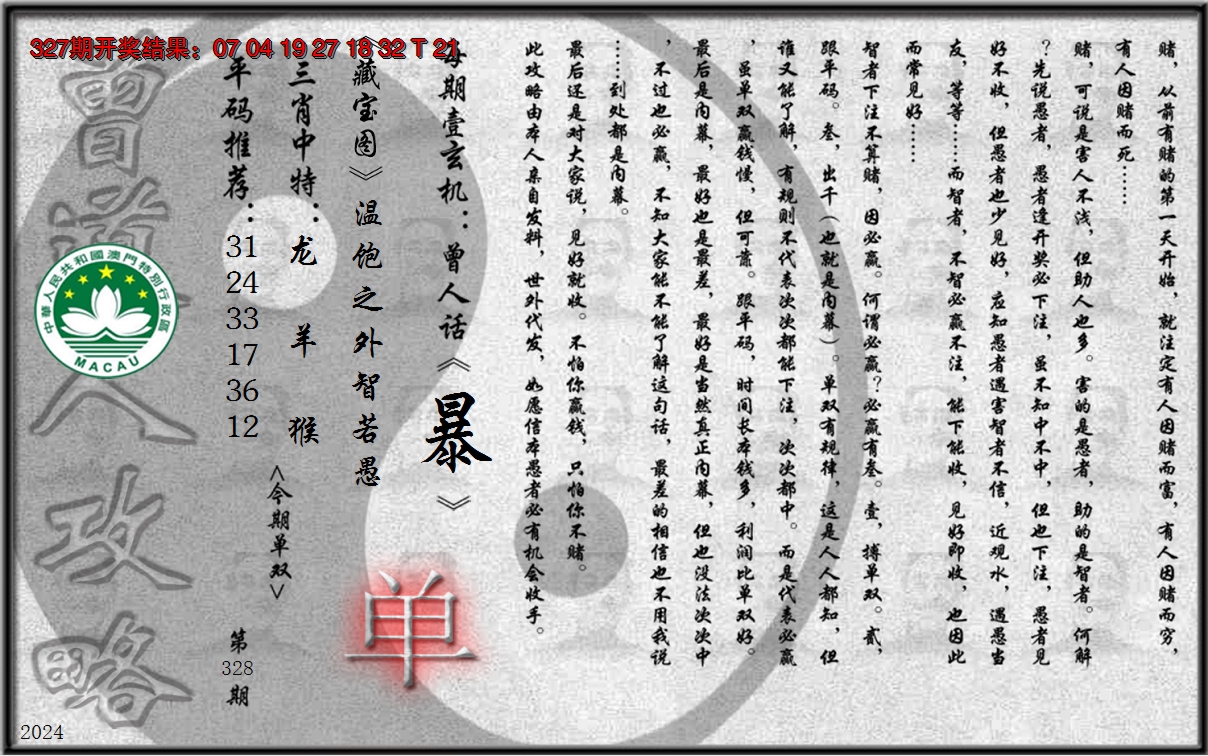 327期开奖结果：07 04 19 27 18 32 T 21
赌，从前有赌的第一天开始，就注定有人因赌而富，有人因赌而穷，
有人因赌而死……
赌，可说是害人不浅，但助人也多。害的是愚者，助的是智者。何解
？先说愚者，愚者逢开奖必下注，虽不知中不中，但也下注，愚者见
好不收，但愚者也少见好，应知愚者遇害智者不信，近观水，遇愚当
友，等等……而智者，不智必赢不注，能下能收，见好即收，也因此
而常见好……
智者下注不算赌，因必赢。何谓必赢？必赢有叁。壹，搏单双。贰，
跟平码。叁，出千（也就是内幕）。单双有规律，这是人人都知，但
谁又能了解，有规则不代表次次都能下注，次次都中。而是代表必赢
，虽单双赢钱慢，但可靠。跟平码，时间长本钱多，利润比单双好。
最后是内幕，最好也是最差，最好是当然真正内幕，但也没法次次中
，不过也必赢，不知大家能不能了解这句话，最差的相信也不用我说
……到处都是内幕。
最后还是对大家说，见好就收。不怕你赢钱，只怕你不赌。
此攻略由本人亲自发料，世外代发，如愿信本愚者必有机会收手。
每期壹玄机：曾人话《暴》
《藏宝图》温饱之外智若愚
单
三肖中特：龙 羊 猴
<今期单双>
平码推荐：31 24 33 17 36 12
第328期
曾道人攻略
中華人民共和國澳門特別行政區
MACAU
2024